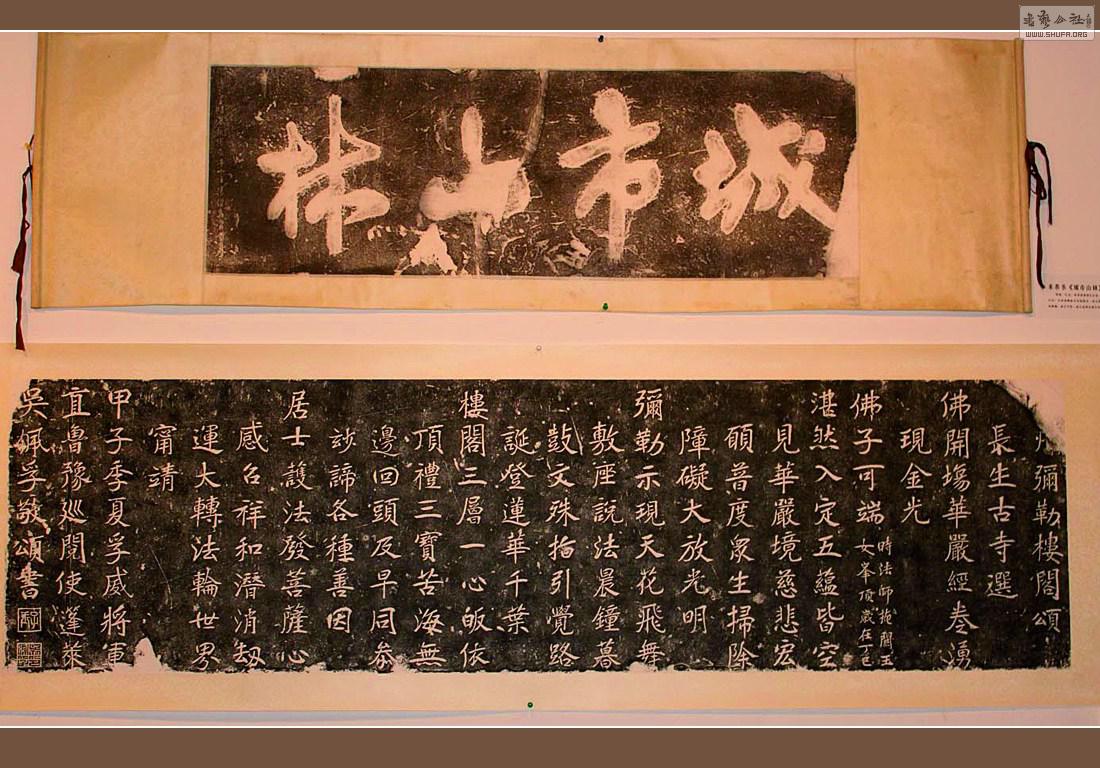 城市山林
彌勒樓閣頌
長生古寺選
佛開場華嚴經卷湧
現金光
佛子可端時法師掩關玉
女峯頂歲在丁巳
湛然入定五蘊皆空
見華嚴境慈悲宏
願普度衆生掃除
障礙大放光明
彌勒示現天花飛舞
敷座說法晨鐘暮
鼓文殊指引覺路
誕登蓮華千葉
樓閣三層一心皈依
頂禮三寶苦海無
邊回頭及早同參
玅諦各種善因
居士護法發菩薩心
感召祥和潛消劫
運大轉法輪世界
甯靖
甲子季夏孚威將軍
直魯豫巡閱使蓬萊
吳佩孚敬頌書
米芾书《城市山林》
书艺公社
WWW.SHUFA.ORG